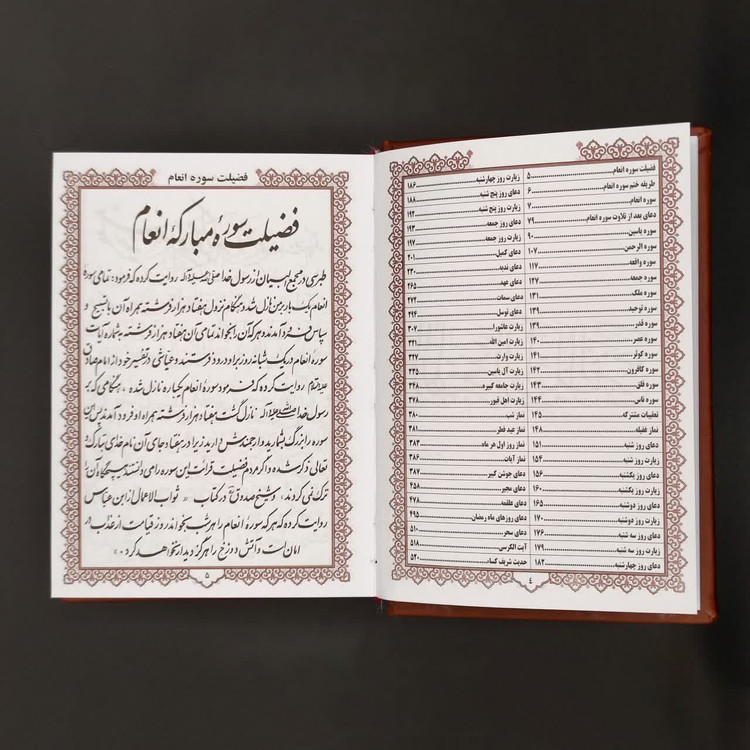 فضیلت سوره انعام ........ ۵
طریقه ختم سوره انعام ........ ۶
سوره انعام ........ ۷
دعای بعد از تلاوت سوره انعام ........ ۷۹
سوره یاسین ........ ۹۰
سوره الرحمن ........ ۱۰۷
سوره واقعه ........ ۱۱۷
سوره جمعه ........ ۱۲۷
سوره ملک ........ ۱۳۱
سوره توحید ........ ۱۳۹
سوره قدر ........ ۱۳۹
سوره عصر ........ ۱۴۰
سوره کوثر ........ ۱۴۱
سوره کافرون ........ ۱۴۲
سوره فلق ........ ۱۴۳
سوره ناس ........ ۱۴۴
تعقیبات مشترکه ........ ۱۴۵
نماز غفیله ........ ۱۴۸
دعای روز شنبه ........ ۱۵۱
زیارت روز شنبه ........ ۱۵۴
دعای روز یکشنبه ........ ۱۵۶
زیارت روز یکشنبه ........ ۱۶۰
دعای روز دوشنبه ........ ۱۶۵
زیارت روز دوشنبه ........ ۱۷۰
دعای روز سه شنبه ........ ۱۷۶
زیارت روز سه شنبه ........ ۱۷۹
دعای روز چهارشنبه ........ ۱۸۲
زیارت روز چهارشنبه ........ ۱۸۶
دعای روز پنج شنبه ........ ۱۸۸
زیارت روز پنج شنبه ........ ۱۹۲
دعای روز جمعه ........ ۱۹۳
زیارت روز جمعه ........ ۱۹۷
دعای کمیل ........ ۲۰۱
دعای ندبه ........ ۲۳۰
دعای عهد ........ ۲۶۵
دعای سمات ........ ۲۷۲
دعای توسل ........ ۲۹۶
زیارت عاشورا ........ ۳۰۷
زیارت امین الله ........ ۳۲۱
زیارت وارث ........ ۳۲۷
زیارت آل یاسین ........ ۳۳۵
زیارت جامعه کبیره ........ ۳۴۸
زیارت اهل قبور ........ ۳۷۸
نماز شب ........ ۳۸۰
نماز عید فطر ........ ۳۸۱
نماز روز اول هر ماه ........ ۳۸۳
نماز آیات ........ ۳۸۶
دعای جوشن کبیر ........ ۳۸۷
دعای مجیر ........ ۴۵۸
دعای علقمه ........ ۴۷۸
دعای روزهای ماه رمضان ........ ۴۹۵
دعای سحر ........ ۵۱۰
آیت الکرسی ........ ۵۱۸
حدیث شریف کساء ........ ۵۲۰
۴
فضیلت سوره انعام
فضیلت سورهٔ مبارکهٔ انعام
طبرسی در مجمع البیان از رسول خدا صلی الله علیه وآله روایت کرده که فرمود: تمامی سوره
انعام یک بار بر من نازل شد و هنگام نزول هفتاد هزار فرشته همراه آن با تسبیح و
سپاس فرود آمدند و هر که آن را بخواند تمامی آن هفتاد هزار فرشته به شماره آیات
سورهٔ انعام در یک شبانه روز براو درود فرستند و عیاشی در تفسیر خود از امام صادق
علیه السلام روایت کرده که فرمود سورهٔ انعام یکباره نازل شده، هنگامی که بر
رسول خدا صلی الله علیه وآله نازل گشت هفتاد هزار فرشته همراه او فرود آمدند پس این
سوره را بزرگ بشمارید و ارجمندش دارید زیرا در هفتاد جای آن نام خدای تبارک و
تعالی ذکر شده و اگر مردم فضیلت قرائت این سوره را می دانستند هیچگاه آن را
ترک نمی کردند، و شیخ صدوق ره در کتاب « ثواب الاعمال از ابن عباس
روایت کرده که هر که سورهٔ انعام را هر شب بخواند روز قیامت از عذاب در
امان است و آتش دوزخ را هرگز دیدار نخواهد کرد.»
۵